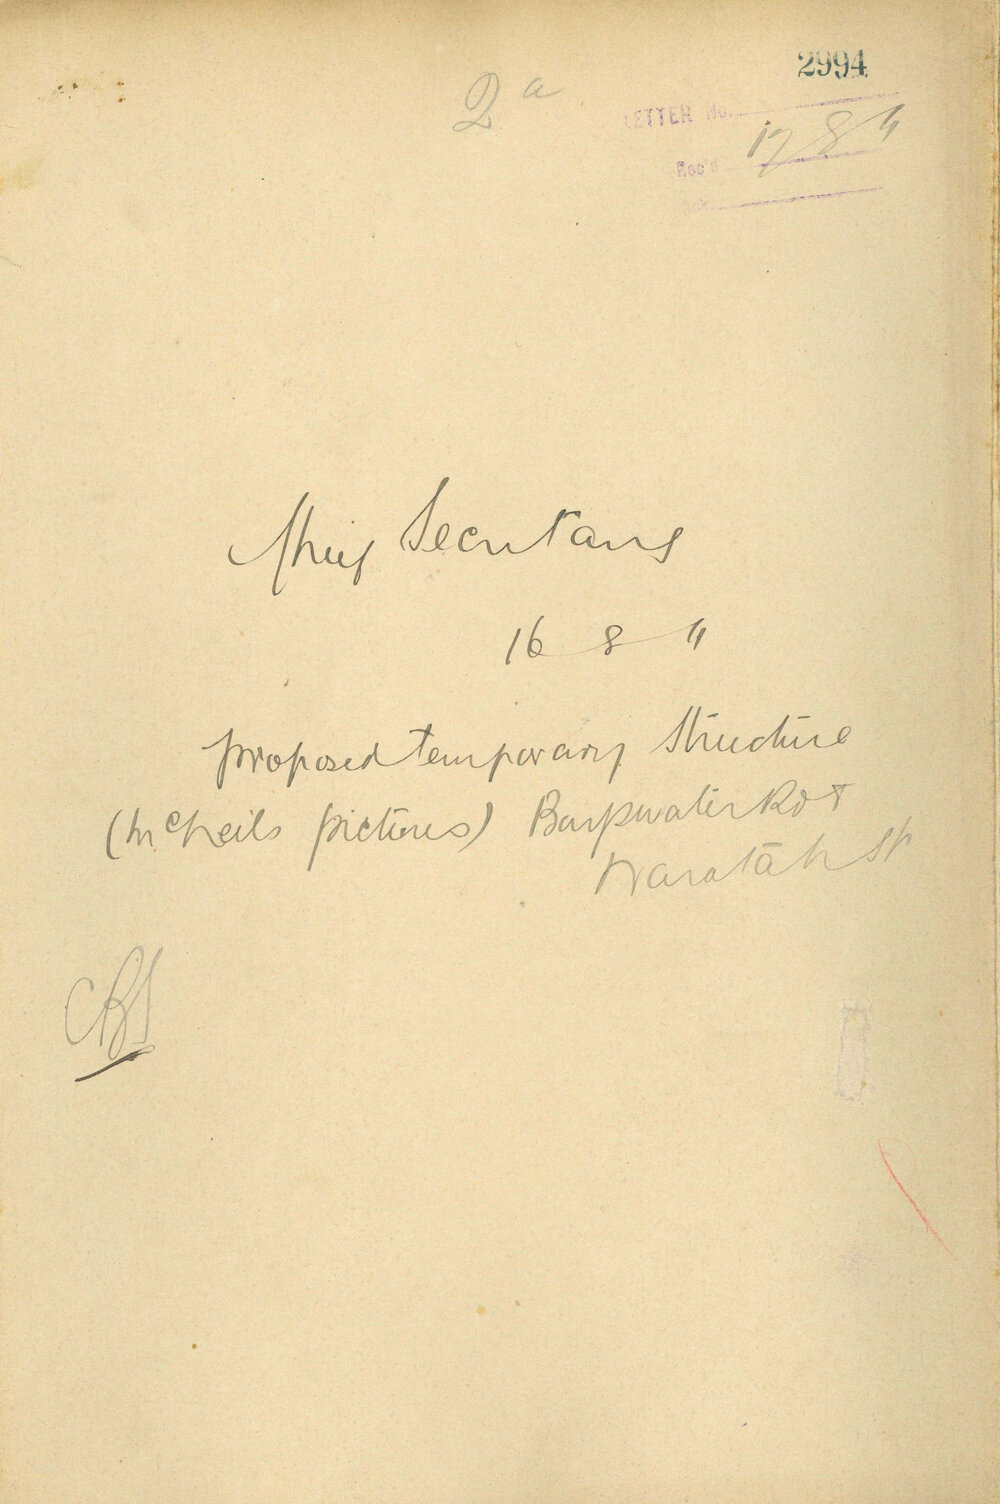 2994
2a
LETTER No.
Rec'd 17 8 11
Ack
Chief Secretary
16 8 11
Proposed temporary structure
(McNeils pictures) Bayswater Rd &
Waratah St